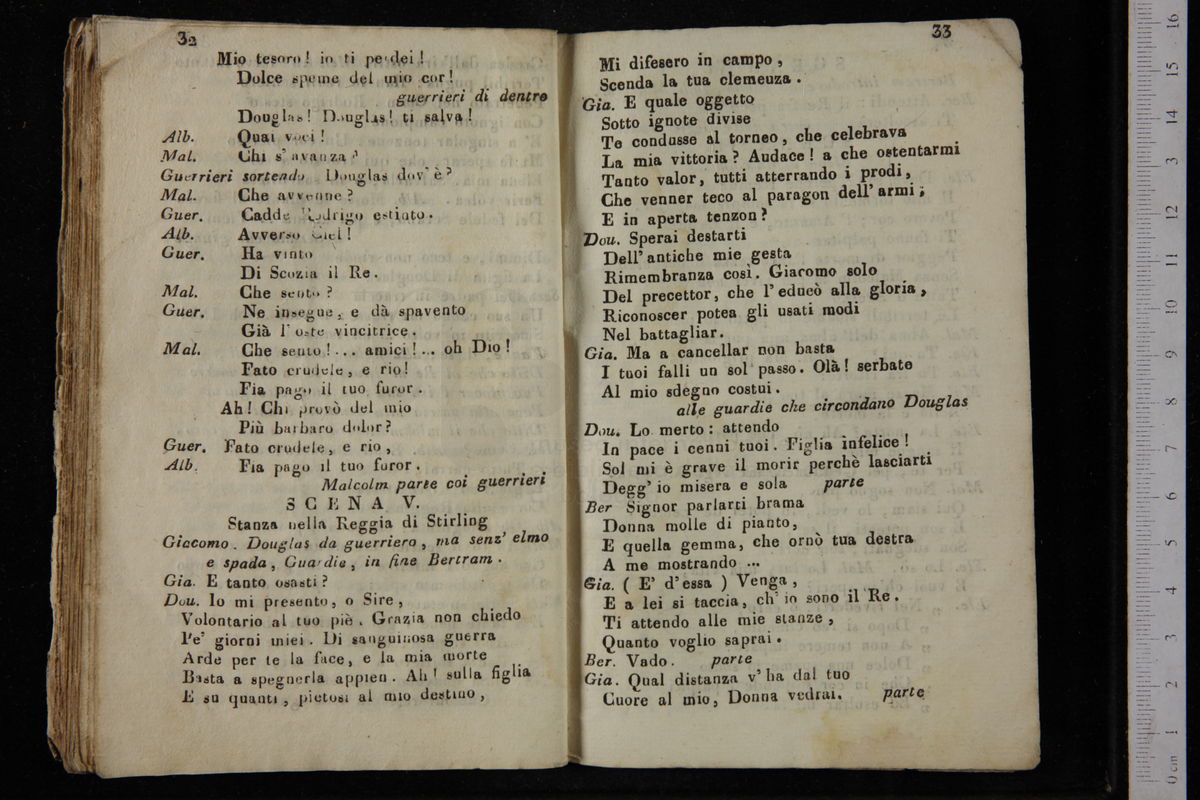 32
Mio tesoro! io ti perdei!
Dolce speme del mio cor!
guerrieri di dentro
Douglas! Douglas! ti salva!
Alb. Quai voci!
Mal. Chi s'avanza?
Guerrieri sortendo Douglas dov'è?
Mal. Che avvenne?
Guer. Cadde Rodrigo estinto.
Alb. Avverso Ciel!
Guer. Ha vinto
Di Scozia il Re.
Mal. Che sento?
Guer. Ne insegue, e dà spavento
Già l'oste vincitrice.
Mal. Che sento!... amici!... oh Dio!
Fato crudele, e rio!
Fia pago il tuo furor.
Ah! Chi provò del mio
Più barbaro dolor?
Guer. Fato crudele, e rio,
Alb. Fia pago il tuo furor.
Malcolm parte coi guerrieri
SCENA V.
Stanza nella Reggia di Stirling
Giacomo. Douglas da guerriero, ma senz'elmo
e spada, Guardie, in fine Bertram.
Gia. E tanto osasti?
Dou. Io mi presento, o Sire,
Volontario al tuo piè. Grazia non chiedo
Pe' giorni miei. Di sanguinosa guerra
Arde per te la face, e la mia morte
Basta a spegnerla appien. Ah! sulla figlia
E su quanti, pietosi al mio destino,
33
Mi difesero in campo,
Scenda la tua clemeuza.
Gia. E quale oggetto
Sotto ignote divise
Te condusse al torneo, che celebrava
La mia vittoria? Audace! a che ostentarmi
Tanto valor, tutti atterrando i prodi,
Che venner teco al paragon dell'armi;
E in aperta tenzon?
Dou. Sperai destarti
Dell'antiche mie gesta
Rimembranza così. Giacomo solo
Del precettor, che l'educò alla gloria,
Riconoscer potea gli usati modi
Nel battagliar.
Gia. Ma a cancellar non basta
I tuoi falli un sol passo. Olà! serbate
Al mio sdegno costui.
alle guardie che circondano Douglas
Dou. Lo merto: attendo
In pace i cenni tuoi. Figlia infelice!
Sol mi è grave il morir perchè lasciarti
Degg'io misera e sola parte
Ber Signor parlarti brama
Donna molle di pianto,
E quella gemma, che ornò tua destra
A me mostrando ...
Gia. ( E' d'essa ) Venga,
E a lei si taccia, ch'io sono il Re.
Ti attendo alle mie stanze,
Quanto voglio saprai.
Ber. Vado. parte
Gia. Qual distanza v'ha dal tuo
Cuore al mio, Donna vedrai. parte
0 cm 1 2 3 4 5 6 7 8 9 10 11 12 13 14 15 16